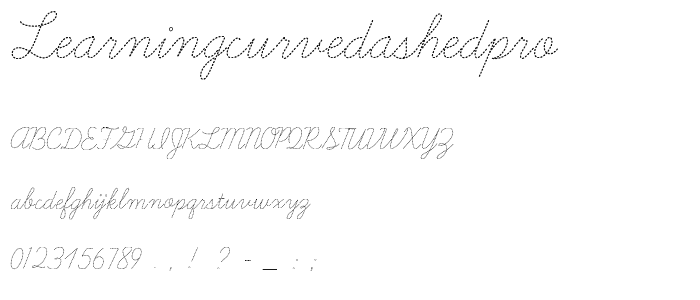 Learningcurvedashedpro
ABCDEFGHIJKLMNOPQRSTUVWXYZ
abcdefghijklmnopqrstuvwxyz
0123456789 . , ! ? - _ : ;